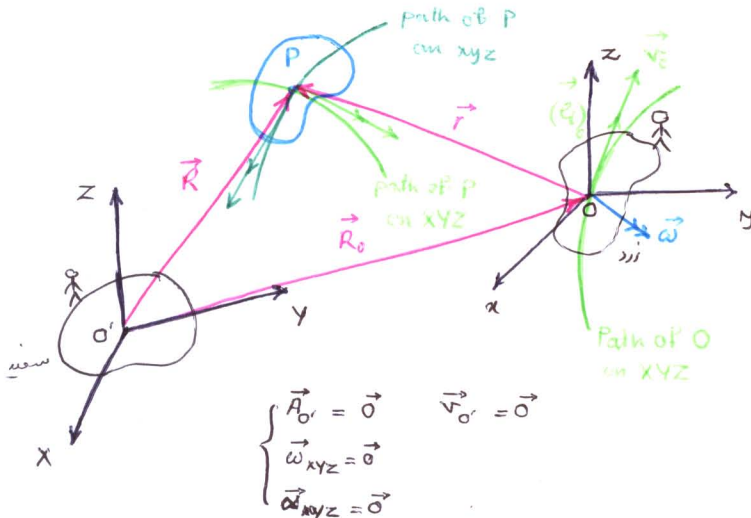 path of P
on xyz
P
z
v⃗₀
(e⃗ₜ)₀
r⃗
R⃗
path of P
on XYZ
Z
R⃗₀
O
y
ω⃗
x
Y
O'
X
Path of O
on XYZ
A⃗_O' = 0⃗ v⃗_O' = 0⃗
ω⃗_XYZ = 0⃗
α⃗_XYZ = 0⃗